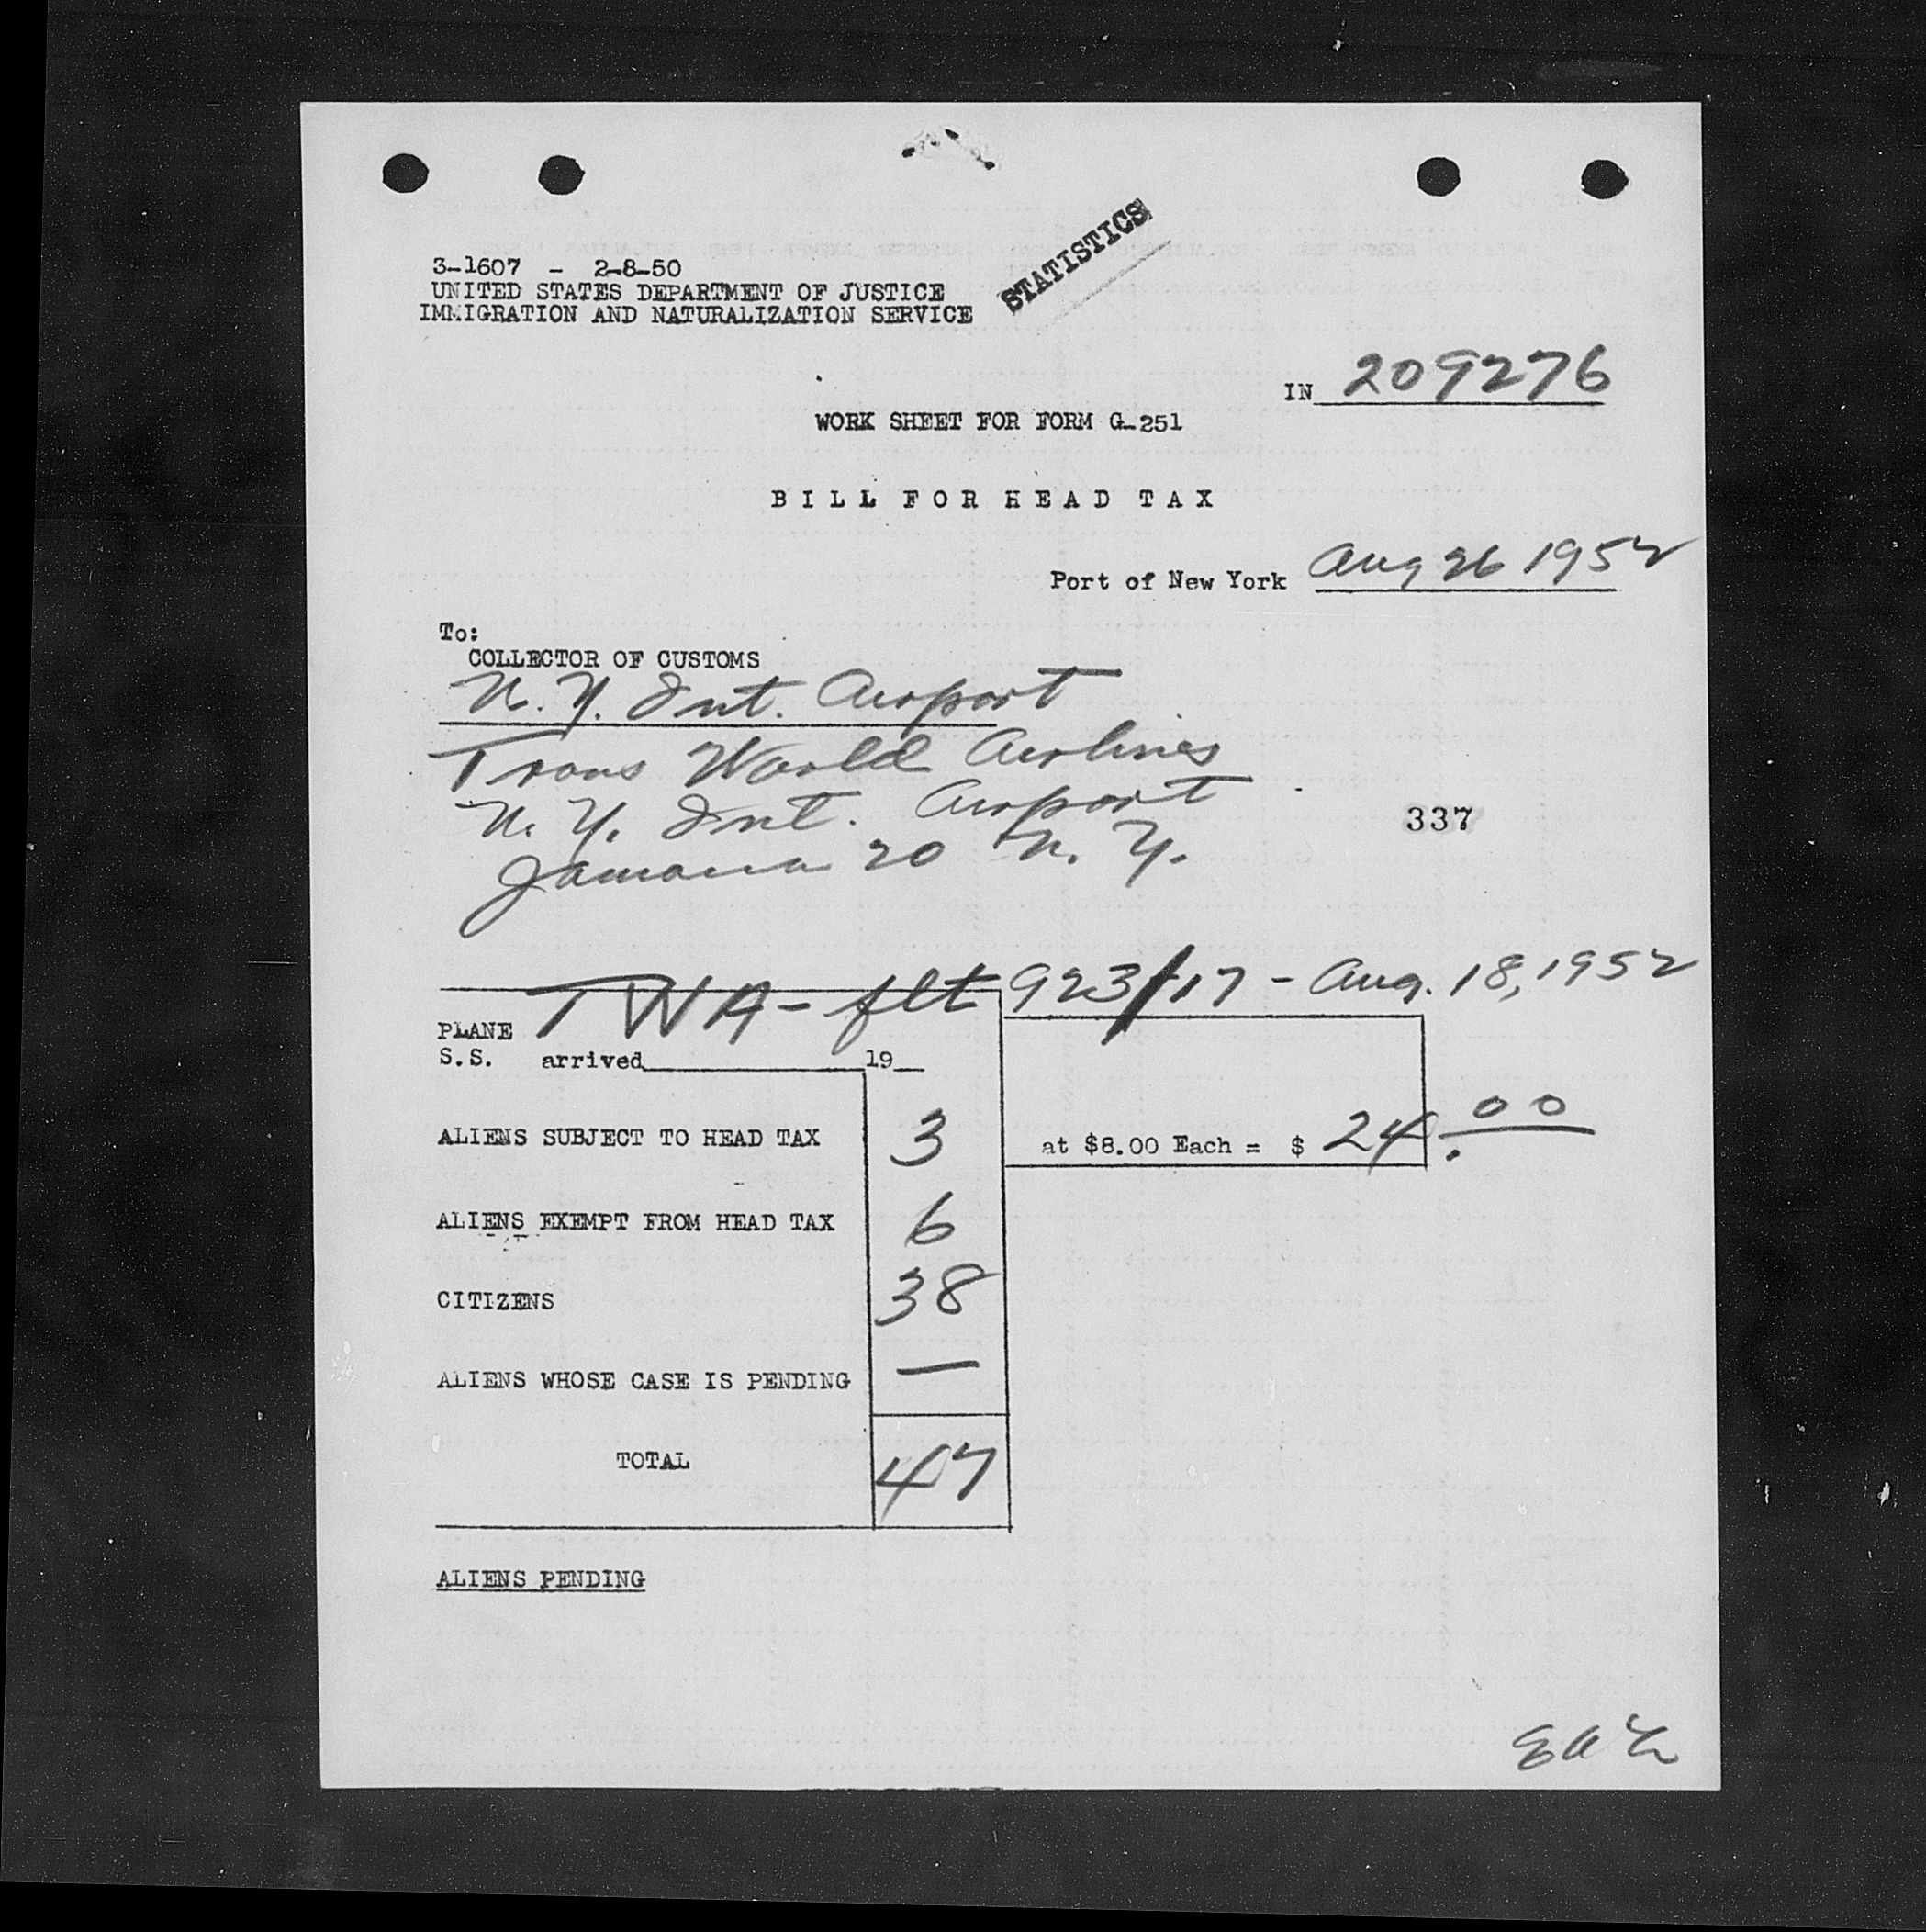 STATISTICS
3-1607 - 2-8-50
UNITED STATES DEPARTMENT OF JUSTICE
IMMIGRATION AND NATURALIZATION SERVICE
IN 209276
WORK SHEET FOR FORM G-251
BILL FOR HEAD TAX
Port of New York Aug 26 1952
To:
COLLECTOR OF CUSTOMS
N.Y. Int. Airport
Trans World Airlines
N.Y. Int. Airport
337
Jamaica 20 N.Y.
TWA - flt 923/17 - Aug. 18, 1952
PLANE
S.S. arrived 19
ALIENS SUBJECT TO HEAD TAX 3 at $8.00 Each = $ 24.00
ALIENS EXEMPT FROM HEAD TAX 6
CITIZENS 38
ALIENS WHOSE CASE IS PENDING —
TOTAL 47
ALIENS PENDING